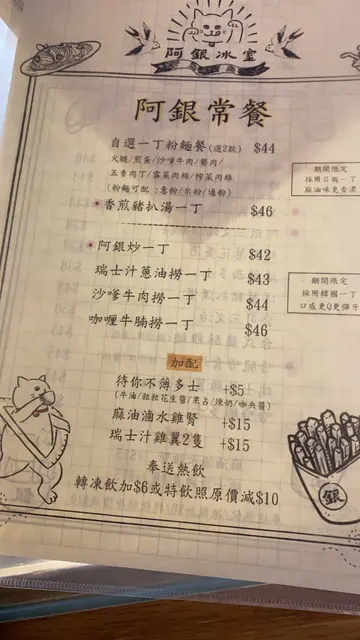 阿銀冰室
阿銀常餐
自選一丁粉麵餐(選2款) $44
火腿/煎蛋/沙嗲牛肉/餐肉/
五香肉丁/雪菜肉絲/榨菜肉絲
(粉麵可配:意粉/米粉/通粉)
香煎豬扒湯一丁 $46
阿銀炒一丁 $42
瑞士汁蔥油撈一丁 $43
沙嗲牛肉撈一丁 $44
咖喱牛腩撈一丁 $46
期間限定
採用日版一丁
麻油味更香濃
期間限定
採用韓國一丁
口感更Q更彈牙
加配
待你不薄多士 +$5
(牛油/粒粒花生醬/果占/煉奶/咖央醬)
麻油滷水雞腎 +$15
瑞士汁雞翼2隻 +$15
奉送熱飲
轉凍飲加$6或特飲照原價減$10
銀